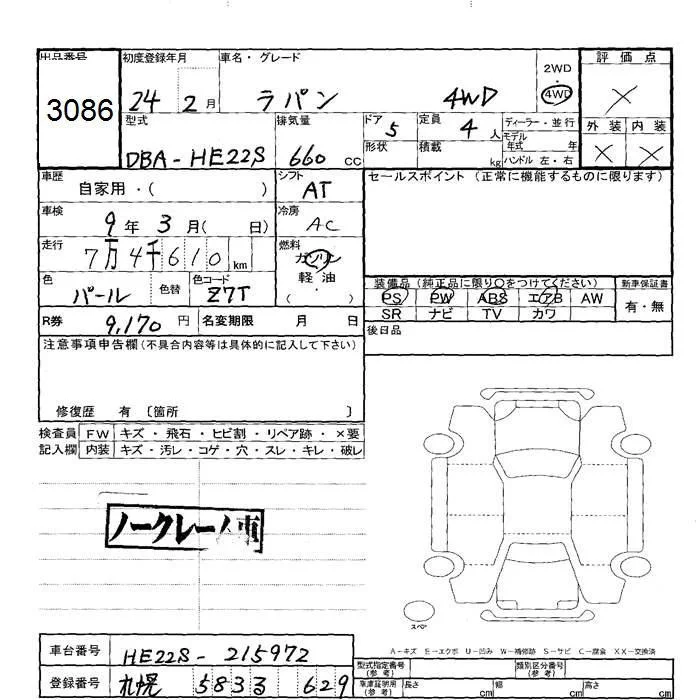 出品番号 初度登録年月 車名・グレード 2WD 評価点
3086 24 2月 ラパン 4WD 4WD ×
型式 排気量 ドア 5 定員 4人 ディーラー・並行 外装 内装
DBA-HE22S 660 cc 形状 積載 kg モデル年式 年 ハンドル 左・右 × ×
車歴 自家用・( ) シフト AT セールスポイント (正常に機能するものに限ります)
車検 9年 3月( 日) 冷房 AC
走行 7万4千610km 燃料 ガソリン 軽油 ・( )
色 パール 色替 色コード Z7T
装備品 (純正品に限り○をつけてください) 新車保証書
PS PW ABS エアB AW 有・無
SR ナビ TV カワ
R券 9,170円 名変期限 月 日 後日品
注意事項申告欄(不具合内容等は具体的に記入して下さい)
修復歴 有 〔箇所 〕
検査員 FW キズ・飛石・ヒビ割・リペア跡・×要
記入欄 内装 キズ・汚レ・コゲ・穴・スレ・キレ・破レ
ノークレーム車
スペア
A-キズ E-エクボ U-凹み W-補修跡 S-サビ C-腐食 XX-交換済
車台番号 HE22S-215972 型式指定番号(参考) 類別区分番号(参考)
登録番号 札幌 583 る 629 車庫証明用(参考) 長さ cm 幅 cm 高さ cm